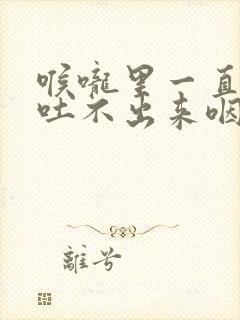 喉嚨里一直
吐不出来咽
離兮